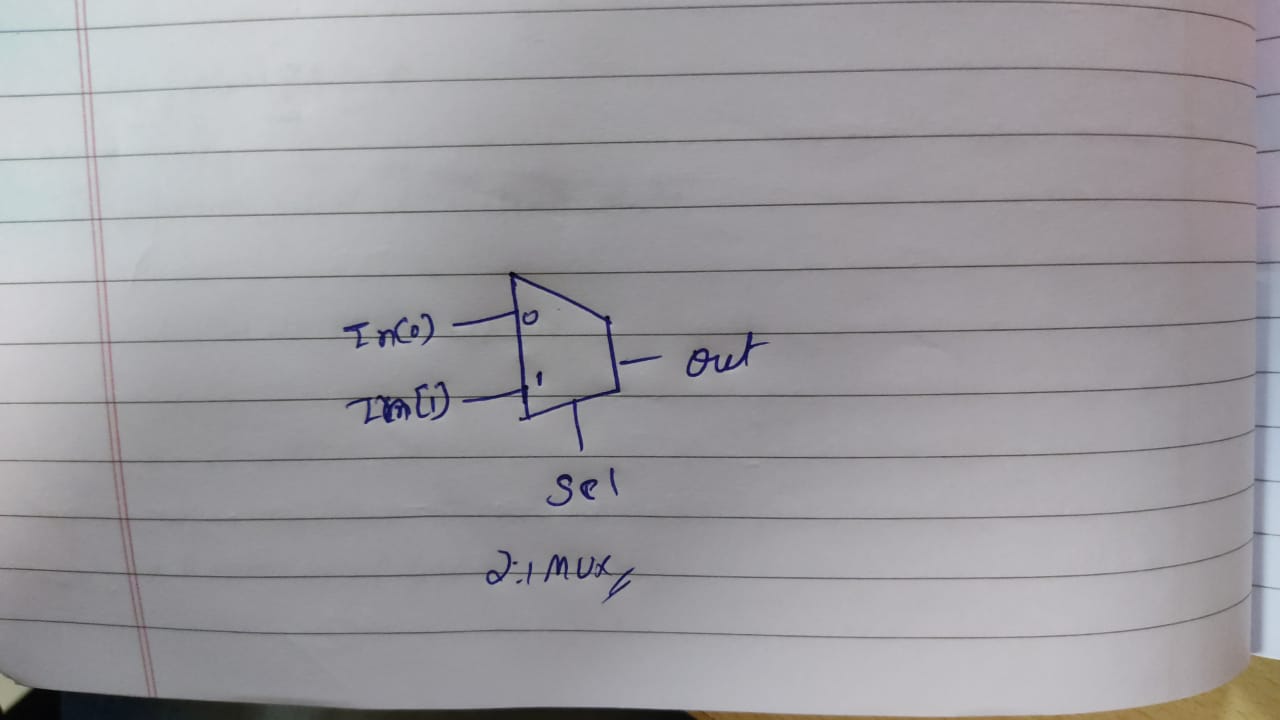 In(0)
0
In[1)
1
out
Sel
2:1 MUX